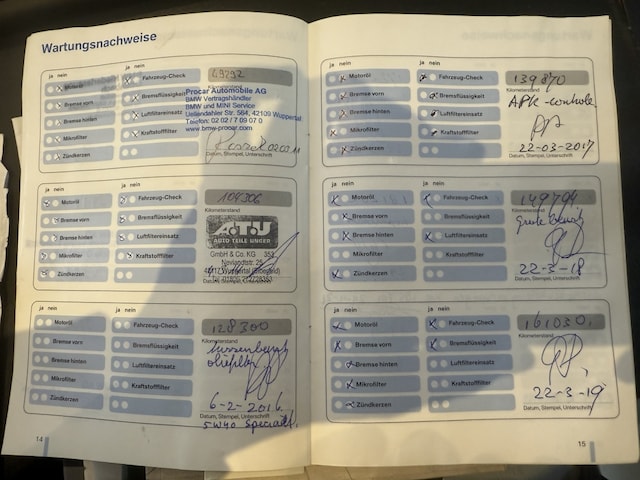 Wartungsnachweise
ja nein
Motoröl
Bremse vorn
Bremse hinten
Mikrofilter
Zündkerzen
ja nein
Fahrzeug-Check
Bremsflüssigkeit
Luftfiltereinsatz
Kraftstofffilter
Procar Automobile AG
BMW Vertragshändler
BMW und MINI Service
Uellendahler Str. 564, 42109 Wuppertal
Telefon: 02 02 / 7 09 07 0
www.bmw-procar.com
Datum, Stempel, Unterschrift
ja nein
Motoröl
Bremse vorn
Bremse hinten
Mikrofilter
Zündkerzen
ja nein
Fahrzeug-Check
Bremsflüssigkeit
Luftfiltereinsatz
Kraftstofffilter
104306
Kilometerstand
A.T.U
AUTO TEILE UNGER
GmbH & Co. KG
Datum, Stempel, Unterschrift
ja nein
Motoröl
Bremse vorn
Bremse hinten
Mikrofilter
Zündkerzen
ja nein
Fahrzeug-Check
Bremsflüssigkeit
Luftfiltereinsatz
Kraftstofffilter
128300
Kilometerstand
6-2-2016
Datum, Stempel, Unterschrift
5W40 Special
14
ja nein
Motoröl
Bremse vorn
Bremse hinten
Mikrofilter
Zündkerzen
ja nein
Fahrzeug-Check
Bremsflüssigkeit
Luftfiltereinsatz
Kraftstofffilter
139870
Kilometerstand
APK-controle
22-03-2017
Datum, Stempel, Unterschrift
ja nein
Motoröl
Bremse vorn
Bremse hinten
Mikrofilter
Zündkerzen
ja nein
Fahrzeug-Check
Bremsflüssigkeit
Luftfiltereinsatz
Kraftstofffilter
149794
Kilometerstand
grote Beurt
22-3-18
Datum, Stempel, Unterschrift
ja nein
Motoröl
Bremse vorn
Bremse hinten
Mikrofilter
Zündkerzen
ja nein
Fahrzeug-Check
Bremsflüssigkeit
Luftfiltereinsatz
Kraftstofffilter
161030
Kilometerstand
22-3-19
Datum, Stempel, Unterschrift
15